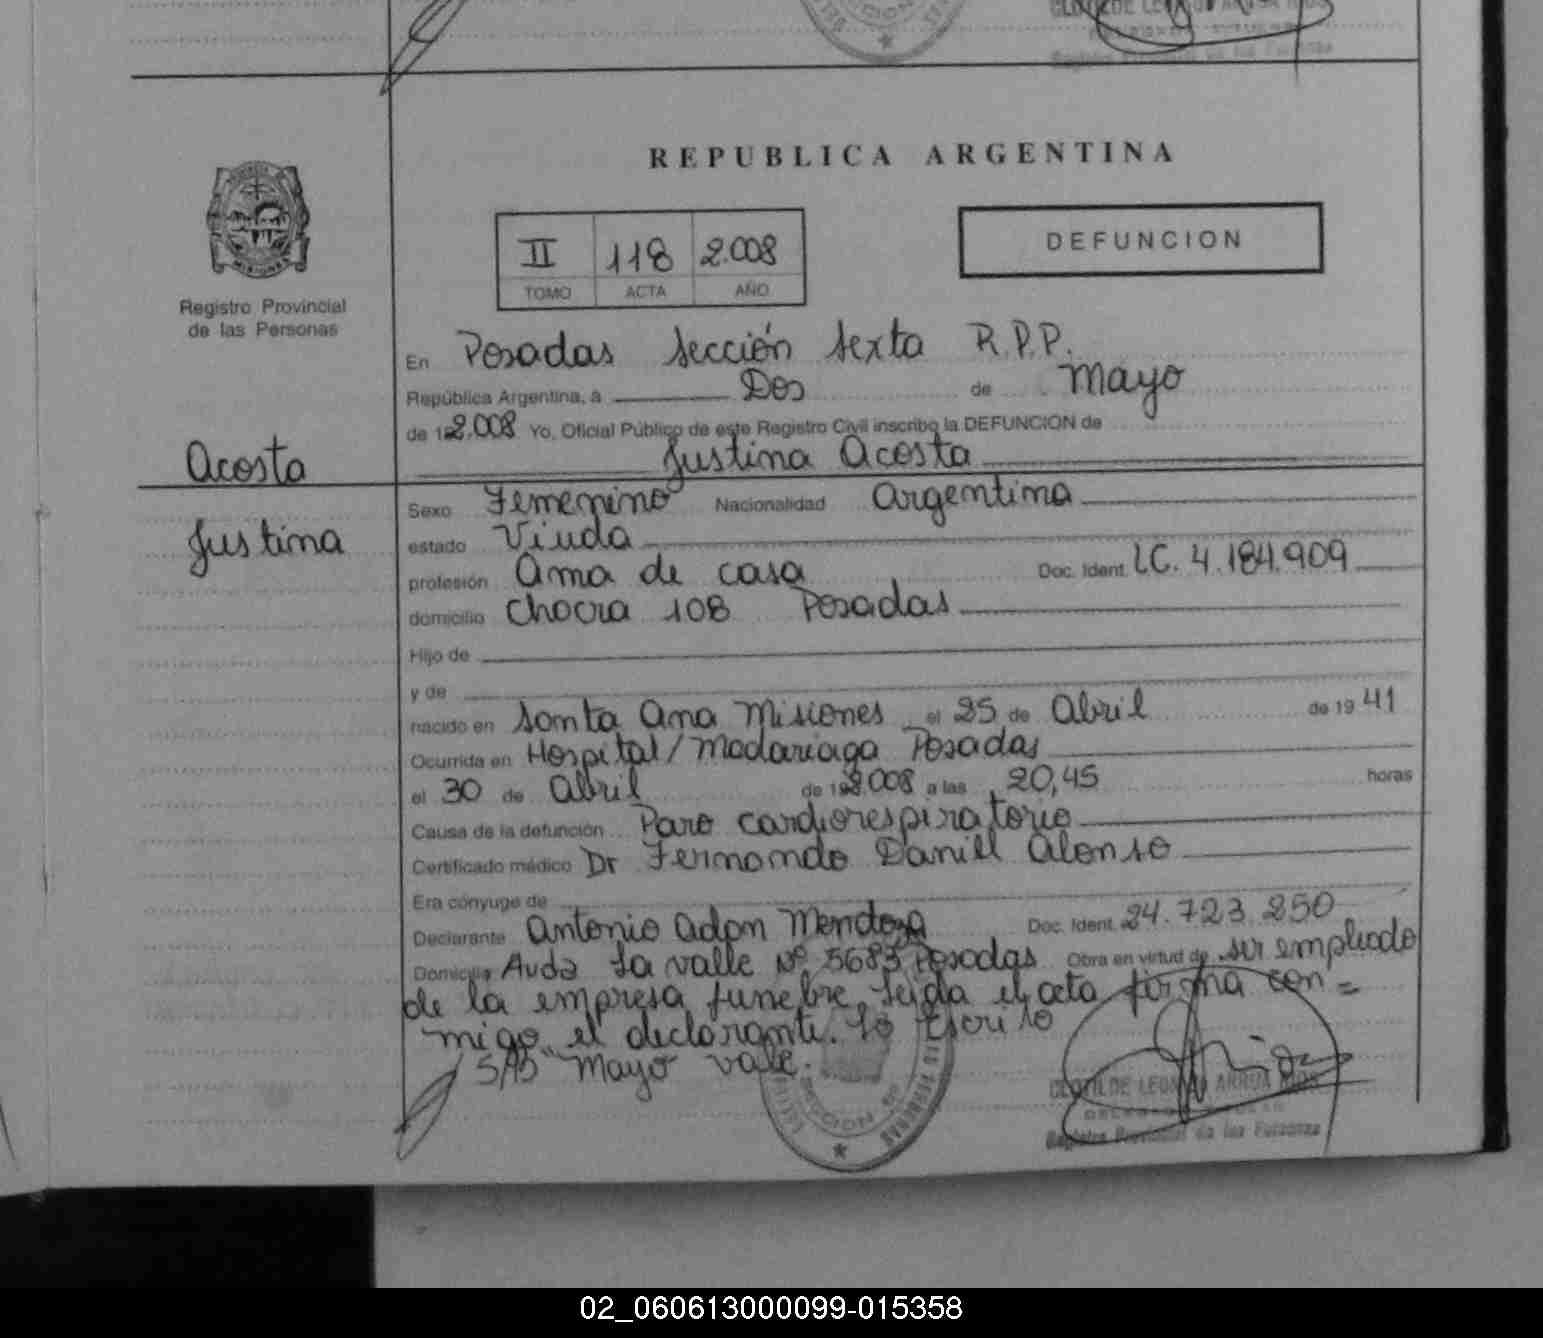 REPUBLICA ARGENTINA
II 118 2.008
TOMO ACTA AÑO
DEFUNCION
MISIONES
Registro Provincial
de las Personas
En Posadas Sección Sexta R.P.P.
República Argentina, a Dos de Mayo
de 2.008 Yo, Oficial Público de este Registro Civil inscribo la DEFUNCION de
Justina Acosta
Acosta
Justina
Sexo Femenino Nacionalidad Argentina
estado Viuda
profesión Ama de casa Doc. Ident. LC. 4.184.909
domicilio Chacra 108 Posadas
Hijo de
y de
nacido en Santa Ana Misiones el 25 de Abril de 19 41
Ocurrida en Hospital/Madariaga Posadas
el 30 de Abril de 2.008 a las 20,45 horas
Causa de la defunción Paro cardiorespiratorio
Certificado médico Dr Fernando Daniel Alonso
Era cónyuge de
Declarante Antonio Adan Mendoza Doc. Ident. 24.723.250
Domicilio Avda La valle Nº 5683 Posadas Obra en virtud de ser empleado
de la empresa funebre, Leida el acta firma con =
migo el declarante. Lo Escrito
S/R "Mayo" vale.
CLOTILDE ARRUA RIOS
Registro Provincial de las Personas
02_060613000099-015358